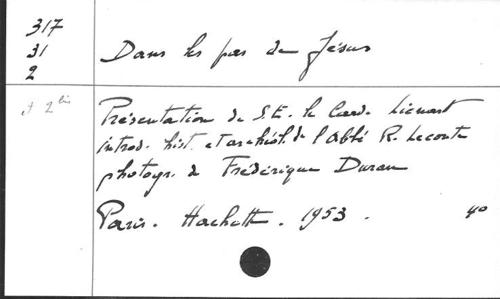 317
31
2
Dans les pas de Jésus
et 2 bis
Présentation de S.E. le Card. Lienart
introd. hist. et archéol. de l'Abbé R. Leconte
photogr. de Frédérique Duran
Paris. Hachette. 1953. 40